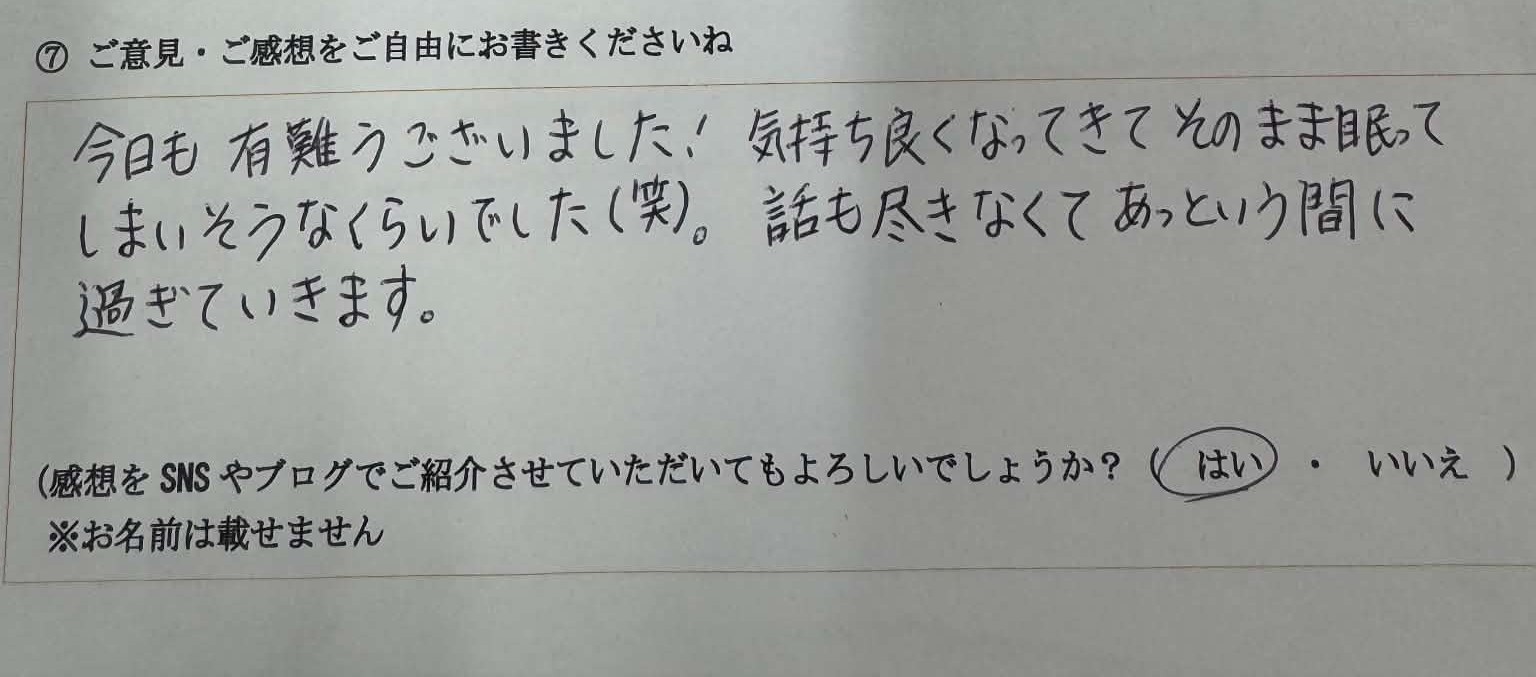 ⑦ ご意見・ご感想をご自由にお書きくださいね
今日も 有難うございました! 気持ち良くなってきて そのまま眠って
しまいそうなくらいでした(笑)。 話も尽きなくて あっという間に
過ぎていきます。
(感想を SNS やブログでご紹介させていただいてもよろしいでしょうか?( はい ・ いいえ )
※お名前は載せません